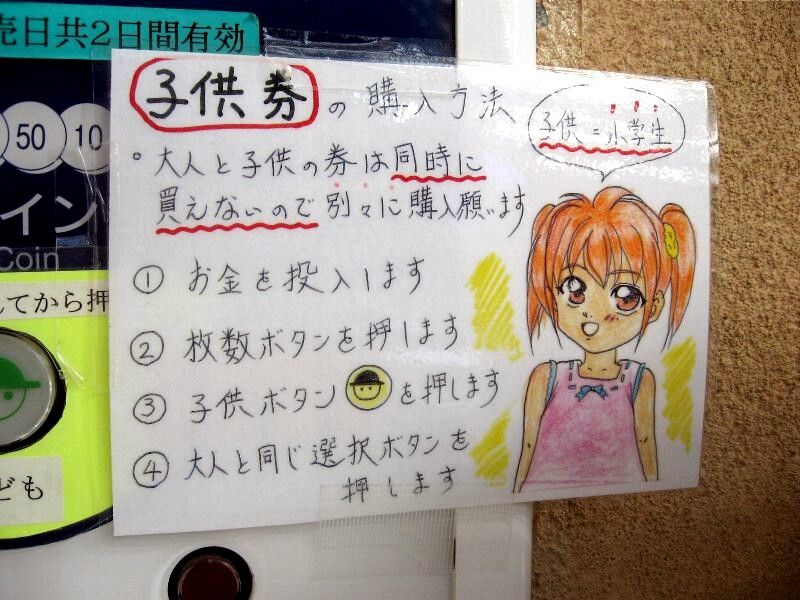 売日共2日間有効
子供券の購入方法
子供=小学生
。大人と子供の券は同時に
買えないので別々に購入願います
50 10
イン
Coin
① お金を投入します
れてから押
② 枚数ボタンを押します
③ 子供ボタン を押します
④ 大人と同じ選択ボタンを
押します
ども